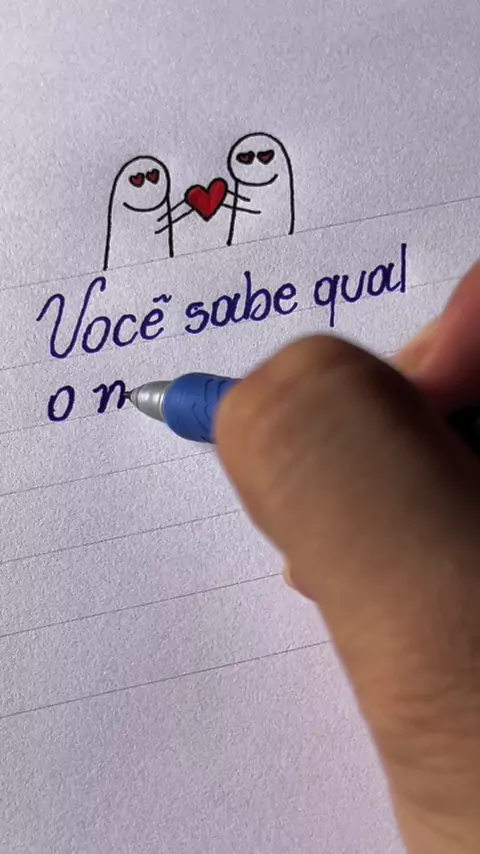 Você sabe qual
o n